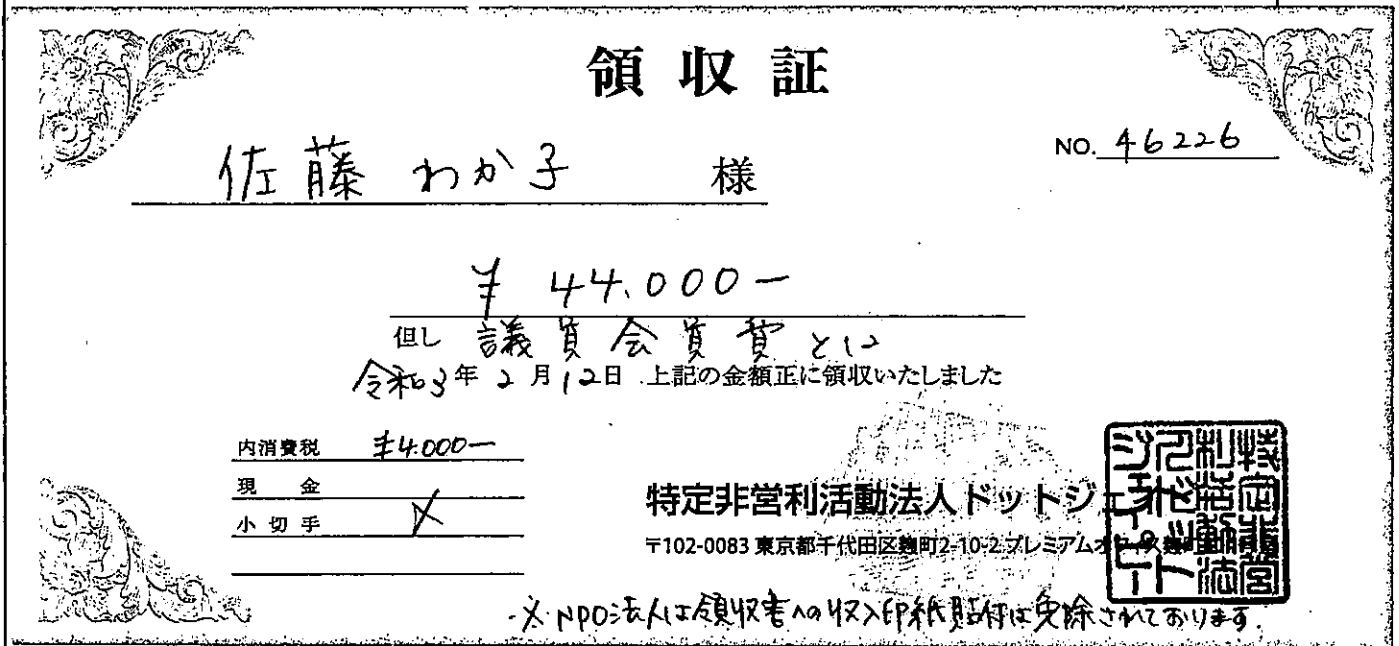 領収証
NO. 46226
佐藤 わか子 様
¥ 44.000-
但し 議員会員費として
令和3年 2月12日 上記の金額正に領収いたしました
内消費税 ¥4.000-
現金
小切手
特定非営利活動法人ドットジェイピー
〒102-0083 東京都千代田区麹町2-10-2 プレミアムオフィス麹町
特定非営利活動法人ドットジェイピー
※NPO法人は領収書への収入印紙貼付は免除されております.